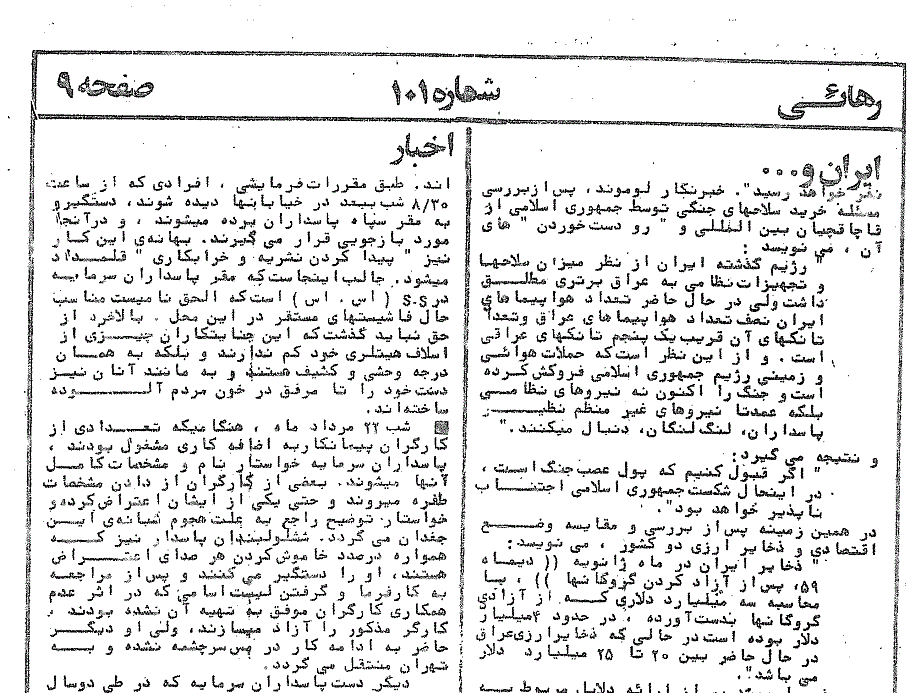 رهائی
شماره ۱۰۱
صفحه ۹
ایران و...
نظر خواهد رسید". خبرنگار لوموند، پس از بررسی
مسئله خرید سلاحهای جنگی توسط جمهوری اسلامی از
قاچاقچیان بین المللی و " رو دست خوردن " های
آن ، می نویسد :
" رژیم گذشته ایران از نظر میزان سلاحها
و تجهیزات نظامی به عراق برتری مطلق
داشت ولی در حال حاضر تعداد هواپیماهای
ایران نصف تعداد هواپیماهای عراق و تعداد
تانکهای آن قریب یک پنجم تانکهای عراقی
است . و از این نظر است که حملات هوائی
و زمینی رژیم جمهوری اسلامی فروکش کرده
است و جنگ را اکنون نه نیروهای نظامی
بلکه عمدتا نیروهای غیر منظم نظیر
پاسداران، لنگ لنگان، دنبال میکنند."
و نتیجه می گیرد:
" اگر قبول کنیم که پول عصب جنگ است ،
در اینحال شکست جمهوری اسلامی اجتناب
ناپذیر خواهد بود".
در همین زمینه پس از بررسی و مقایسه وضع
اقتصادی و ذخایر ارزی دو کشور ، می نویسد:
" ذخایر ایران در ماه ژانویه (( دیماه
۵۹، پس از آزاد کردن گروگانها )) ، با
محاسبه سه میلیارد دلاری که از آزادی
گروگانها بدست آورده ، در حدود ۴ میلیارد
دلار بوده است در حالی که ذخایر ارزی عراق
در حال حاضر بین ۲۰ تا ۲۵ میلیارد دلار
می باشد".
اخبار
اند. طبق مقررات فرمایشی ، افرادی که از ساعت
۸/۳۰ شب ببعد در خیابانها دیده شوند، دستگیر و
به مقر سپاه پاسداران برده میشوند ، و در آنجا
مورد بازجویی قرار می گیرند. بهانه‌ی این کار
نیز " پیدا کردن نشریه و خرابکاری " قلمداد
میشود. جالب اینجاست که مقر پاسداران سرمایه
در S.S ( اس . اس ) است که الحق نامیست مناسب
حال فاشیستهای مستقر در این محل . بالاخره از
حق نباید گذشت که این جنایتکاران چیزی از
اسلاف هیتلری خود کم ندارند و بلکه به همان
درجه وحشی و کثیف هستند و به مانند آنان نیز
دست خود را تا مرفق در خون مردم آلوده
ساخته اند.
■ شب ۲۲ مرداد ماه ، هنگامیکه تعدادی از
کارگران پیمانکار به اضافه کاری مشغول بودند ،
پاسداران سرمایه خواستار نام و مشخصات کامل
آنها میشوند. بعضی از کارگران از دادن مشخصات
طفره میروند و حتی یکی از ایشان اعتراض کرده و
خواستار توضیح راجع به علت هجوم شبانه‌ی این
جغدان می گردد. ششلولبندان پاسدار نیز که
همواره درصدد خاموش کردن هر صدای اعتراض
هستند، او را دستگیر می کنند و پس از مراجعه
به کارفرما و گرفتن لیست اسامی که در اثر عدم
همکاری کارگران موفق به تهیه آن نشده بودند ،
کارگر مذکور را آزاد میسازند، ولی او دیگر
حاضر به ادامه کار در مس سرچشمه نشده و به
تهران منتقل می گردد.
دیگر دست پاسداران سرمایه که در طی دو سال